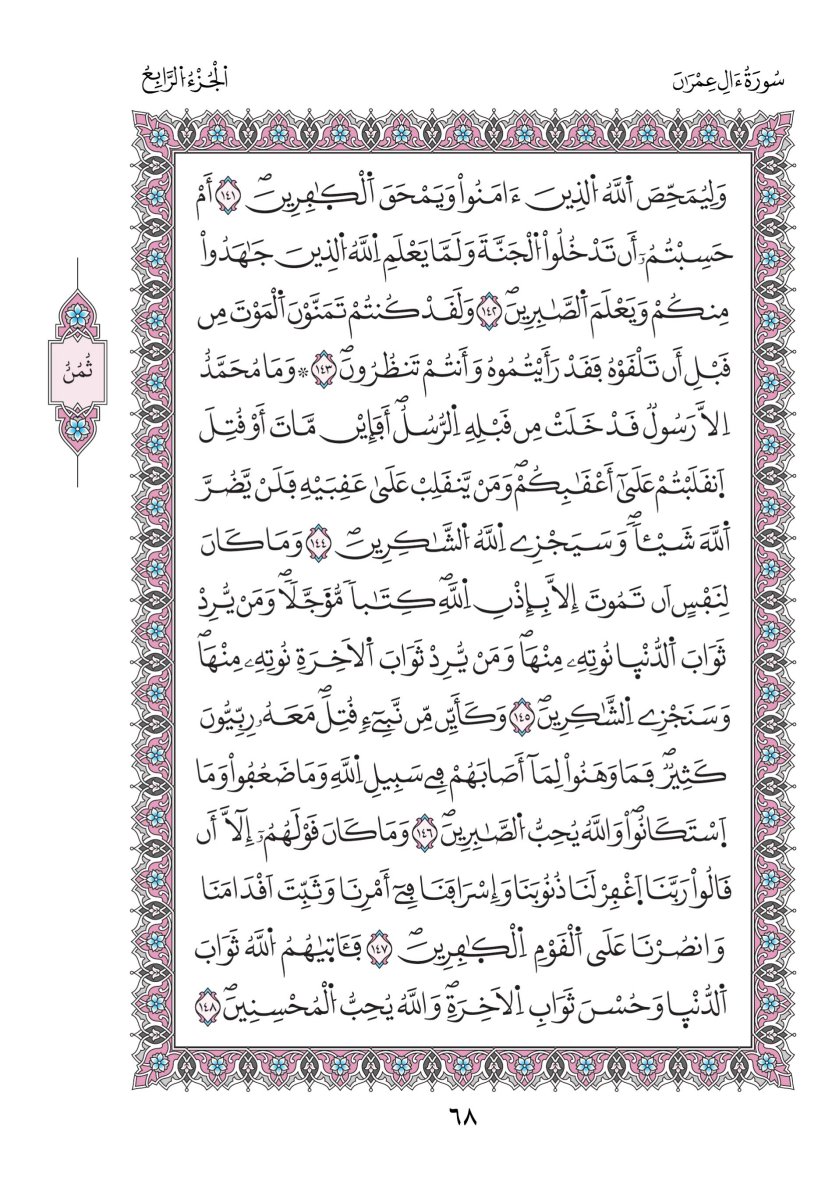 سُورَةُ ءَالِ عِمْرَٰنَ
اَلْجُزْءُ اَلرَّابِعُ
وَلِيُمَحِّصَ اَللَّهُ اُلذِينَ ءَامَنُواْ وَيَمْحَقَ اَلْكَٰفِرِينَۖ ١٤١ أَمْ
حَسِبْتُمُۥٓ أَن تَدْخُلُواْ اُلْجَنَّةَ وَلَمَّا يَعْلَمِ اِللَّهُ اُلذِينَ جَٰهَدُواْ
مِنكُمْ وَيَعْلَمَ اَلصَّٰبِرِينَۖ ١٤٢ وَلَقَدْ كُنتُمْ تَمَنَّوْنَ اَلْمَوْتَ مِن
قَبْلِ أَن تَلْقَوْهُ فَقَدْ رَأَيْتُمُوهُ وَأَنتُمْ تَنظُرُونَۖ ١٤٣ ۞ وَمَا مُحَمَّدٌ
اِلَّا رَسُولٌ قَدْ خَلَتْ مِن قَبْلِهِ اِلرُّسُلُۖ أَفَإِيْن مَّاتَ أَوْ قُتِلَ
اَنقَلَبْتُمْ عَلَىٰٓ أَعْقَٰبِكُمْۖ وَمَنْ يَّنقَلِبْ عَلَىٰ عَقِبَيْهِ فَلَنْ يَّضُرَّ
اَللَّهَ شَيْـٔاٗۖ وَسَيَجْزِے اِللَّهُ اُلشَّٰكِرِينَۖ ١٤٤ وَمَا كَانَ
لِنَفْسٍ اَن تَمُوتَ إِلَّا بِإِذْنِ اِللَّهِۖ كِتَٰباٗ مُّؤَجَّلاٗۖ وَمَنْ يُّرِدْ
ثَوَابَ اَلدُّنْيٜا نُوتِهِۦ مِنْهَاۖ وَمَنْ يُّرِدْ ثَوَابَ اَلَاخِرَةِ نُوتِهِۦ مِنْهَاۖ
وَسَنَجْزِے اِلشَّٰكِرِينَۖ ١٤٥ وَكَأَيِّن مِّن نَّبِيٓءٖ قُتِلَۖ مَعَهُۥ رِبِّيُّونَ
كَثِيرٞۖ فَمَا وَهَنُواْ لِمَآ أَصَابَهُمْ فِے سَبِيلِ اِللَّهِ وَمَا ضَعُفُواْ وَمَا
اَسْتَكَانُواْۖ وَاللَّهُ يُحِبُّ اُلصَّٰبِرِينَۖ ١٤٦ وَمَا كَانَ قَوْلَهُمُۥٓ إِلَّآ أَن
قَالُواْ رَبَّنَا اَغْفِرْ لَنَا ذُنُوبَنَا وَإِسْرَافَنَا فِےٓ أَمْرِنَا وَثَبِّتَ اَقْدَامَنَا
وَانصُرْنَا عَلَى اَلْقَوْمِ اِلْكَٰفِرِينَۖ ١٤٧ فَـَٔات۪يٰهُمُ اُللَّهُ ثَوَابَ
اَلدُّنْيٜا وَحُسْنَ ثَوَابِ اِلَاخِرَةِۖ وَاللَّهُ يُحِبُّ اُلْمُحْسِنِينَۖ ١٤٨
ثُمُنُ
٦٨